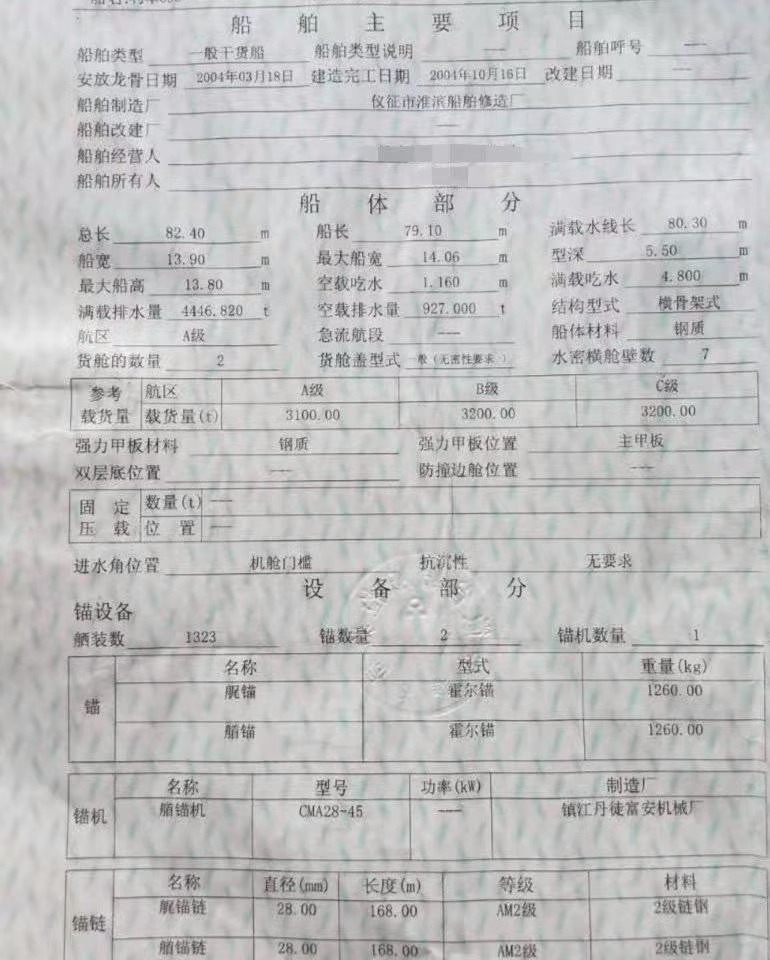 船舶主要项目
船舶类型 一般干货船 船舶类型说明 --- 船舶呼号 ---
安放龙骨日期 2004年03月18日 建造完工日期 2004年10月16日 改建日期 ---
船舶制造厂 仪征市淮滨船舶修造厂
船舶改建厂 ---
船舶经营人
船舶所有人
船体部分
总长 82.40 m 船长 79.10 m 满载水线长 80.30 m
船宽 13.90 m 最大船宽 14.06 m 型深 5.50 m
最大船高 13.80 m 空载吃水 1.160 m 满载吃水 4.800 m
满载排水量 4446.820 t 空载排水量 927.000 t 结构型式 横骨架式
航区 A级 急流航段 --- 船体材料 钢质
货舱的数量 2 货舱盖型式 一般(无密性要求) 水密横舱壁数 7
参考 航区 A级 B级 C级
载货量 载货量(t) 3100.00 3200.00 3200.00
强力甲板材料 钢质 强力甲板位置 主甲板
双层底位置 --- 防撞边舱位置 ---
固定 数量(t) ---
压载 位置 ---
进水角位置 机舱门槛 抗沉性 无要求
设备部分
锚设备
舾装数 1323 锚数量 2 锚机数量 1
名称 型式 重量(kg)
锚 艉锚 霍尔锚 1260.00
艏锚 霍尔锚 1260.00
名称 型号 功率(kW) 制造厂
锚机 艏锚机 CMA28-45 --- 镇江丹徒富安机械厂
名称 直径(mm) 长度(m) 等级 材料
锚链 艉锚链 28.00 168.00 AM2级 2级链钢
艏锚链 28.00 168.00 AM2级 2级链钢